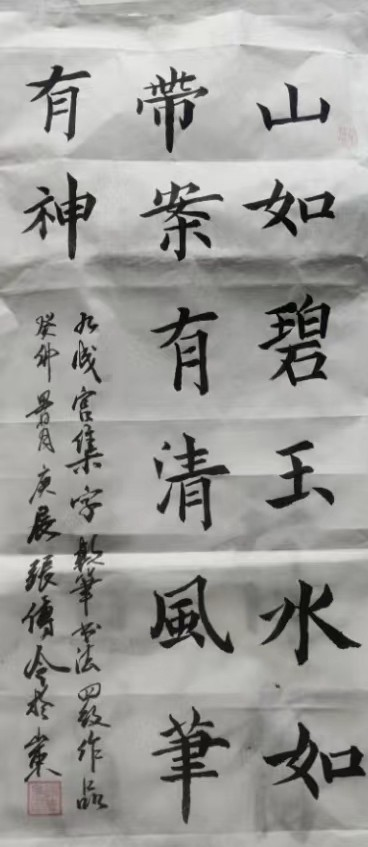 山如碧玉水如
帶案有清風筆
有神
九成宮集字軟筆書法四級作品
癸卯 月庚辰張傳令於 東